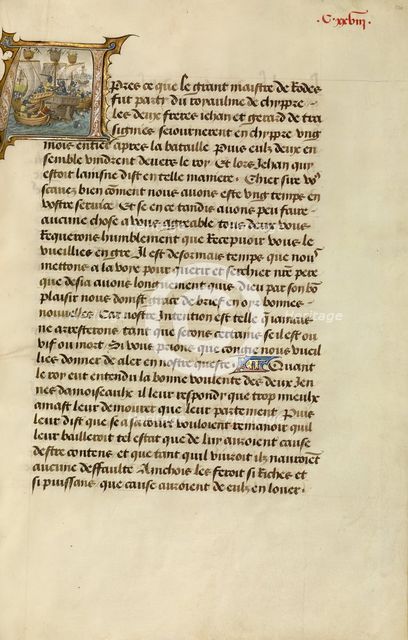 C xxviii
Apres ce que le grant maistre de Rodes
fut party du royaulme de chyppre
les deux freres iehan et gerard de tra
signies seiournerent en chyppre vng
mois entier apres la bataille Puis eulz deux en
semble vindrent deuers le roy Et lors Jehan quy
estoit laisne dist en telle maniere Chier sire vous
scauez bien comment nous auons este vng temps en
vostre seruice Et se en ce tandis auons peu faire
aucune chose a vous agreable tous deux vous
Requerons humblement que Receuoir vous le
vueillies en gre Il est desormais temps que nous
mettons a la voye pour querir et serchier nostre pere
que desia auons longuement quis Dieu par son bon
plaisir nous doinst grace de brief en oyr bonnes
nouuelles Car nostre Intention est telle que iamais
ne arresterons tant que serons certains se il est ou
vif ou mort Si vous prions que congie nous vueil
lies donner de aler en nostre queste Quant
le roy eut entendu la bonne voulente des deux Jen
nes damoiseaulx il leur respondy que trop mieulx
amast leur demourer que leur partement Puis
leur dist que se a sa court vouloient remanoir quil
leur bailleroit tel estat que de luy auroient cause
destre contens et que tant quil viuroit ilz nauroient
aucune deffaulte Ainchois les feroit si Riches et
si puissans que cause auroient de eulz en louer
Heritage